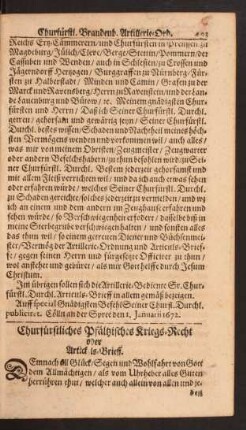 Churfürstl. Brandenb. Artillerie-Ord.
Reichs Ertz-Cämmerern und Churfürsten in Preussen zu
Magdeburg/ Jülich/ Cleve/ Berge/ Stettin/ Pommern/ der
Cassuben und Wenden/ auch in Schlesien/ zu Crossen und
Jägerndorff Hertzogen/ Burggraffen zu Nürnberg/ Für-
sten zu Halberstadt/ Minden und Camin/ Grafen zu der
Marck und Ravensberg/ Herrn zu Ravenstein/ und der Lan-
de Lauenburg und Bütow/ ec. Meinem gnädigsten Churfür-
sten und Herrn/ Daß ich Seiner Churfürstl. Durchl.
getreu/ gehorsam und gewärtig seyn/ Seiner Churfürstl.
Durchl. bestes wissen/ Schaden und Nachtheil meines höch-
sten Vermögens wenden und vorkommen wil/ auch alles/
was mir von meinem Obristen/ Zeugmeister/ Zeugwarter
oder andern Befehlshabern/ zu thun befohlen wird/ zu Sei-
ner Churfürstl. Durchl. Bestem jederzeit gehorsamst und
mit allem Fleiß verrichten wil/ und da ich auch etwas sehen
oder erfahren würde/ welches Seiner Churfürstl. Durchl.
zu Schaden gereichte/ solches jederzeit zu vermelden/ und wo
ich an einem und dem andern im Zeughause erfahren und
sehen würde/ so Verschwiegenheit erfodert/ dasselbe biß in
meine Sterbegrube verschwiegen halten/ und sonsten alles
das thun wil/ so einem getreuen Diener und Büchsenmei-
ster/ Vermög der Artillerie-Ordnung und Articuls-Brief-
fe/ gegen seinen Herrn und fürgesetzte Officirer zu thun
wol anstehet und gebüret/ als mir Gott helffe durch Jesum
Christum.
Im übrigen sollen sich die Artillerie-Bediente Sr. Chur-
fürstl. Durchl. Articuls-Brieff in allem gemäß bezeigen.
Auff special Gnädigsten Befehl Seiner Churf. Durchl.
publiciret. Cölln an der Spree den 1. Januarii 1672.
Churfürstliches Pfältzisches Kriegs-Recht
oder
Articuls-Brieff.
Demnach all Glück/ Segen und Wohlfahrt von Gott
dem Allmächtigen/ als vom Uhrheber alles Guten
herrühren thut/ welcher auch allein von allen und je-